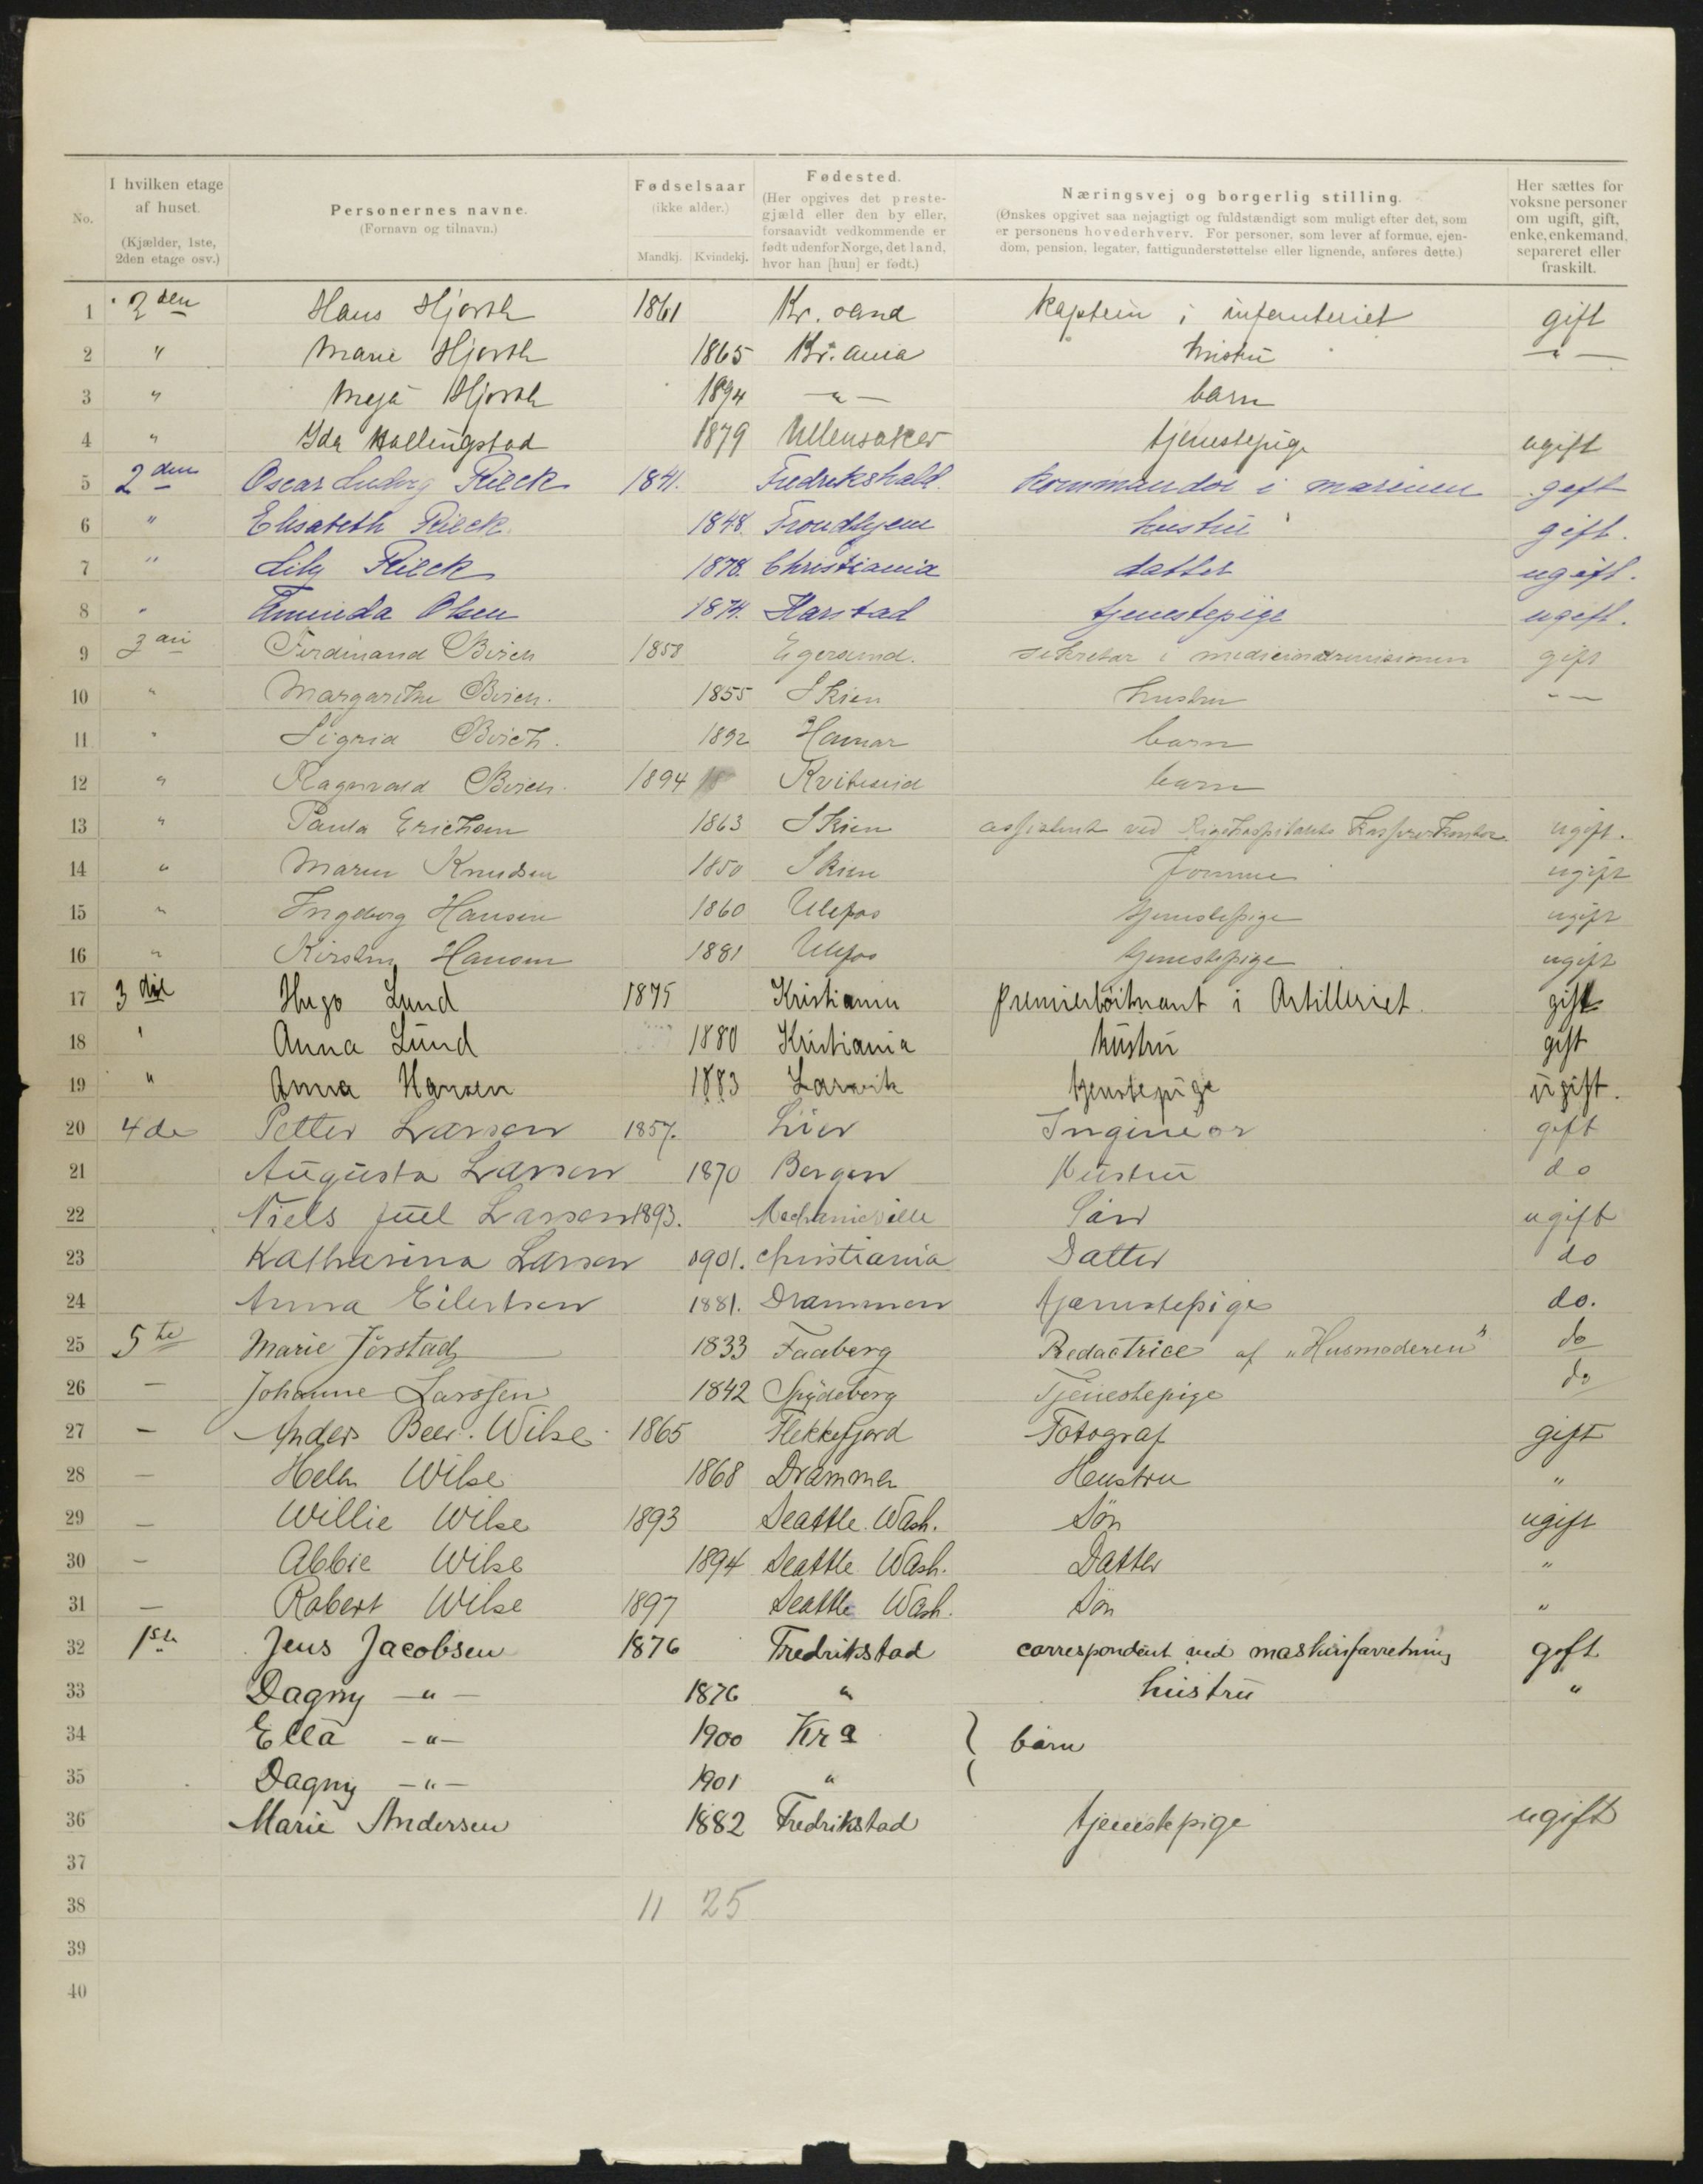 No.
I hvilken etage af huset. (Kjælder, 1ste, 2den etage osv.)
Personernes navne. (Fornavn og tilnavn.)
Fødselsaar (ikke alder.) Mandkj. Kvindekj.
Fødested. (Her opgives det prestegjæld eller den by eller, forsaavidt vedkommende er født udenfor Norge, det land, hvor han [hun] er født.)
Næringsvej og borgerlig stilling. (Ønskes opgivet saa nøjagtigt og fuldstændigt som muligt efter det, som er personens hovederhverv. For personer, som lever af formue, ejendom, pension, legater, fattigunderstøttelse eller lignende, anføres dette.)
Her sættes for voksne personer om ugift, gift, enke, enkemand, separeret eller fraskilt.
1 2den Hans Hjorth 1861 Kr. sand Kaptein i infanteriet gift
2 " Marie Hjorth 1865 Kr. ania hustru — " —
3 " Meja Hjorth 1894 — " — barn
4 " Ida Hallingstad 1879 Ullensaker tjenestepige ugift
5 2den Oscar Ludvig Rieck 1841. Fredrikshald. Kommandør i marinen gift
6 " Elisabeth Rieck. 1848. Trondhjem hustru gift.
7 " Lily Rieck 1878. Christiania datter ugift.
8 " Olsen 1874. Harstad tjenestepige ugift.
9 Ferdinand Birch 1858 Egersund. sekretær i gift
10 " Margarethe Birch. 1855 Skien hustru — —
11 " Sigrid Birch. 1892 Hamar barn
12 " Ragnvald Birch. 1894 Kviteseid barn
13 " Paula Erichsen 1863 Skien assistent ved Rigshospitalets Kassererkontor. ugift.
14 " Maren Knudsen 1850 Skien Formue ugift
15 " Ingeborg Hansen 1860 Ulefos tjenestepige ugift
16 " Kirsten Hansen 1881 Ulefos tjenestepige ugift
17 3die Hugo Lund 1875 Kristiania premierløitnant i Artilleriet. gift
18 " Anna Lund 1880 Kristiania hustru gift
19 " Anna Hansen 1883 Larvik tjenstepige ugift.
20 4de Petter Larsen 1857. Lier Ingenieør gift
21 Augusta Larsen 1870 Bergen Hustru do
22 Niels Juel Larsen 1893. Mechanicville Søn ugift
23 Katharina Larsen 1901. Christiania Datter do
24 Anna Eilertsen 1881. Drammen tjenestepige do.
25 5te Marie Jørstad 1833 Faaberg Redactrice af „Husmoderen" do
26 — Johanne Larssen 1842 Spydeberg Tjenestepige do
27 — Anders Beer. Wilse 1865 Flekkefjord Fotograf gift
28 — Helen Wilse 1868 Drammen Hustru "
29 — Willie Wilse 1893 Seattle. Wash. Søn ugift
30 — Abbie Wilse 1894 Seattle Wash. Datter "
31 — Robert Wilse 1897 Seattle Wash. Søn "
32 1ste Jens Jacobsen 1876 Fredrikstad correspondent ved maskinforretning gift
33 Dagny — " — 1876 " hustru "
34 Ella — " — 1900 Kra } barn
35 Dagny — " — 1901 "
36 Marie Andersen 1882 Fredrikstad tjenestepige ugift
37
38 11 25
39
40